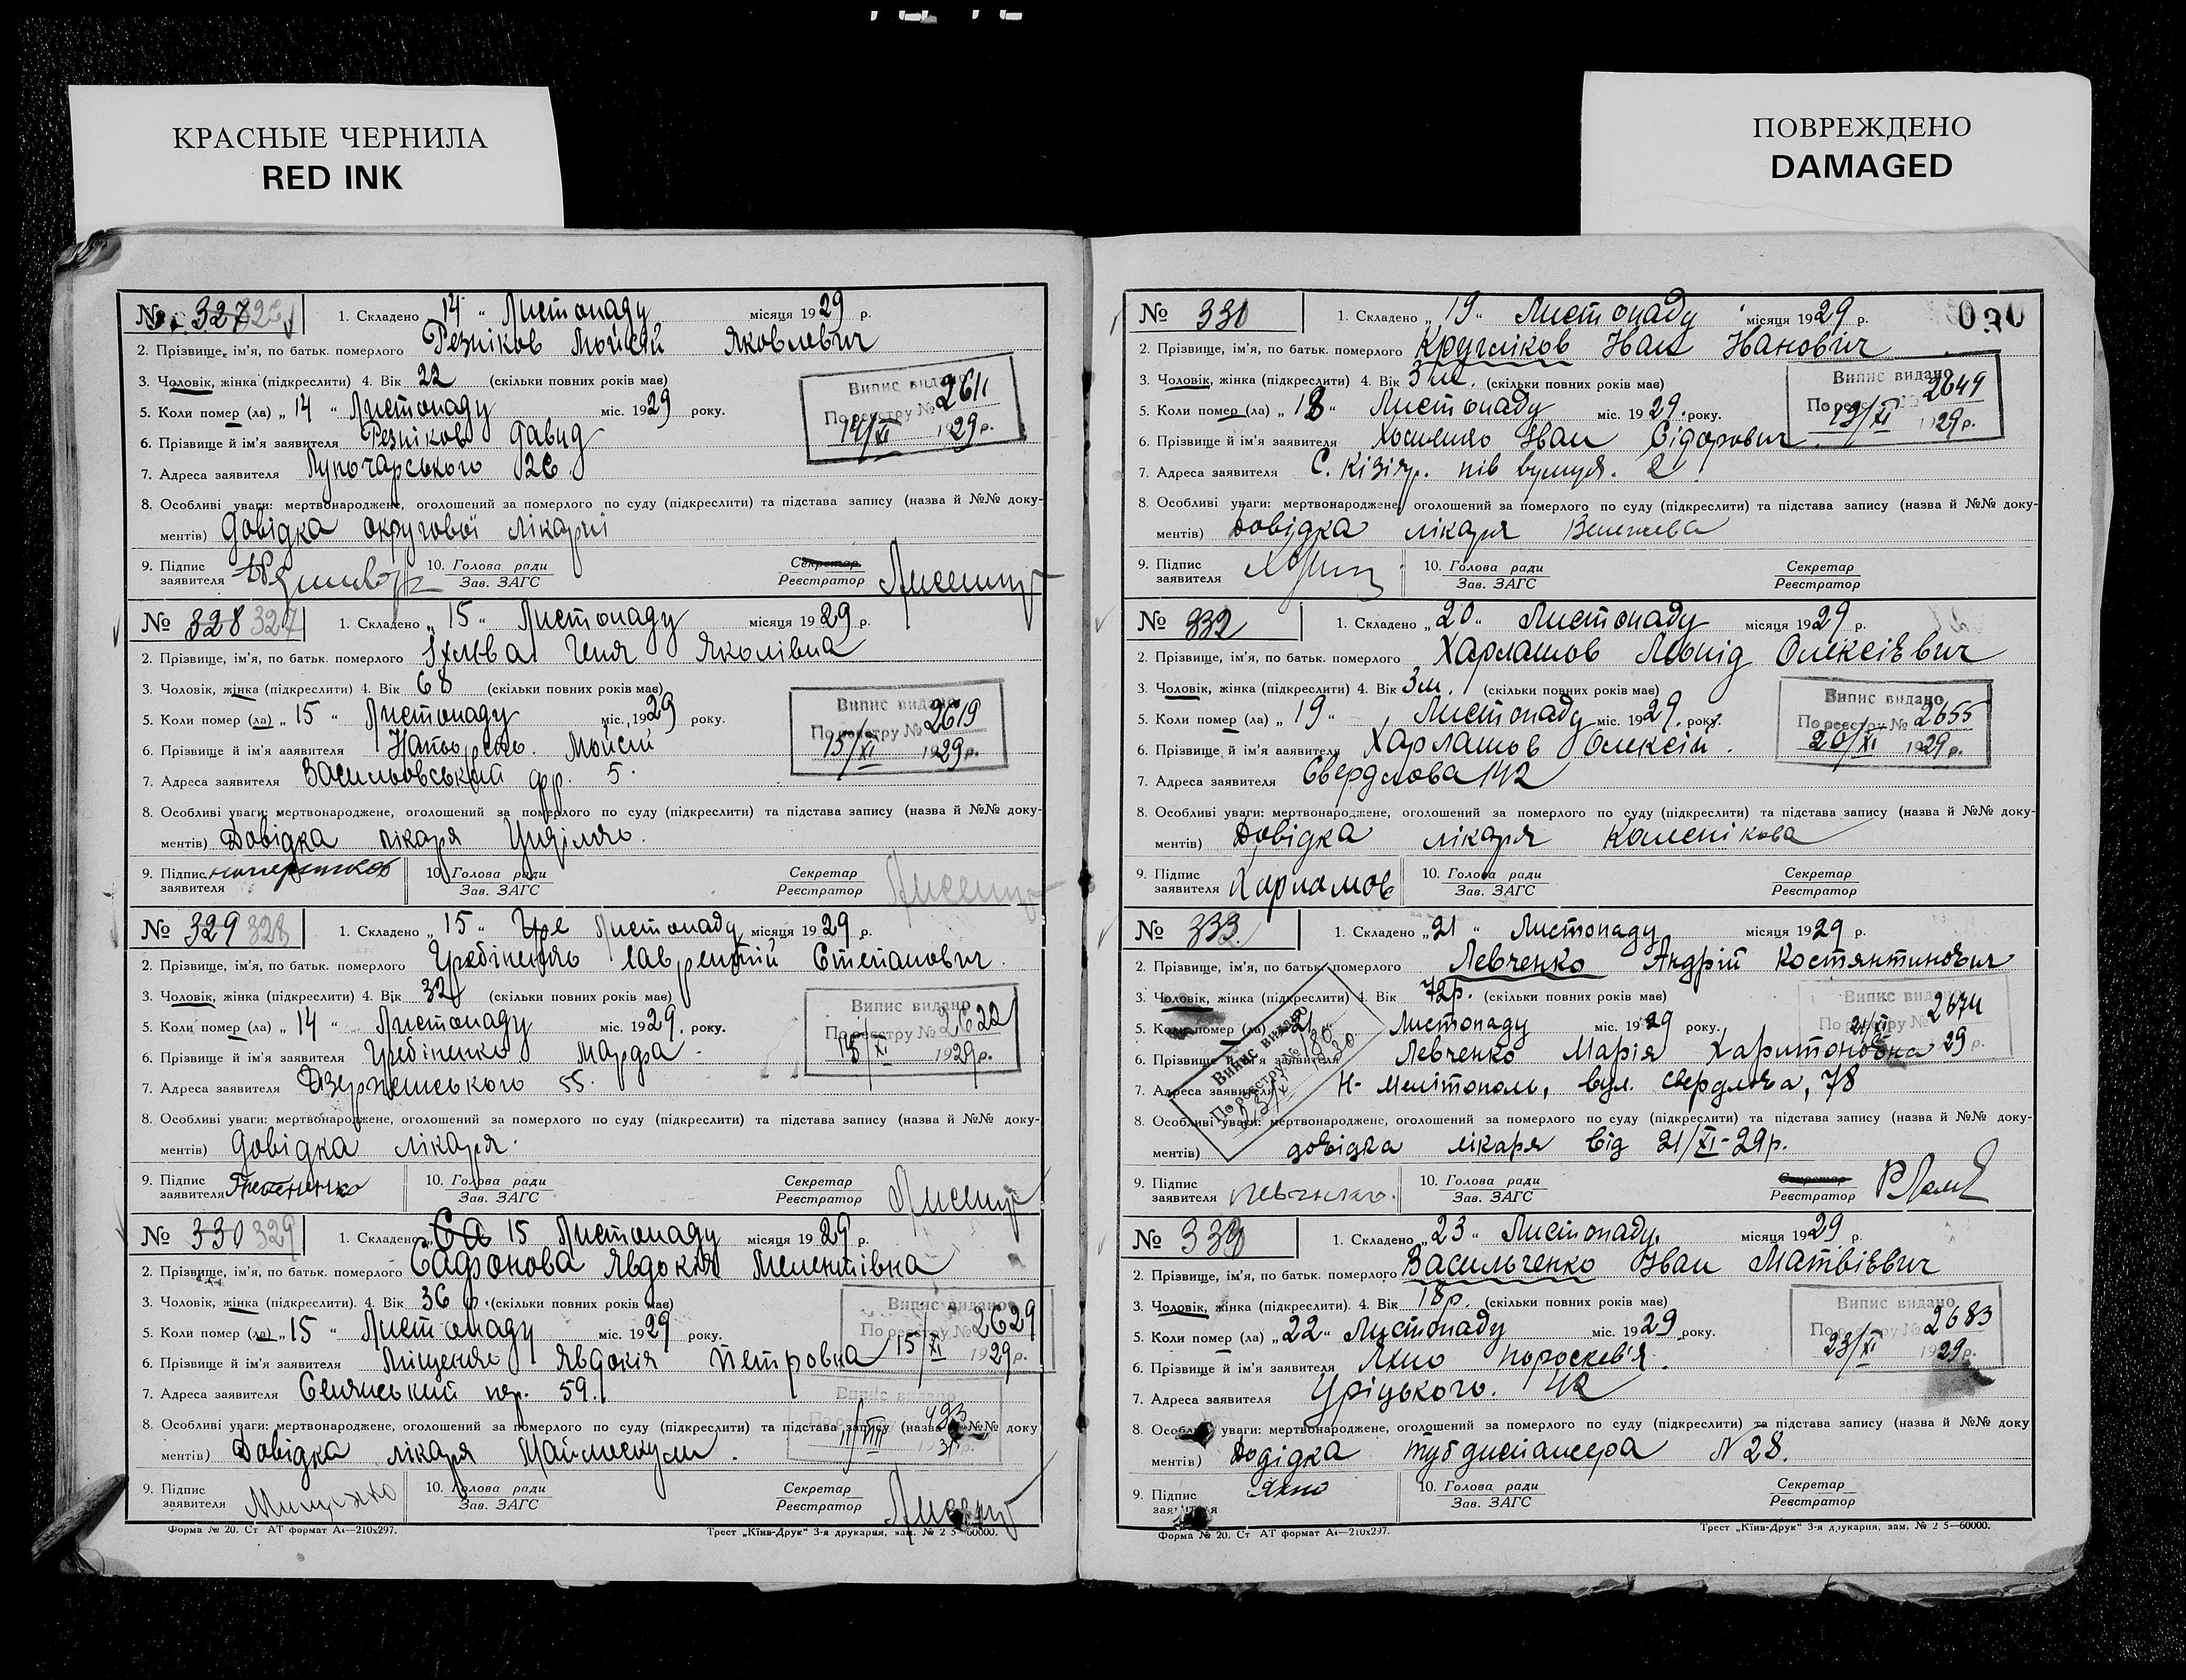 КРАСНЫЕ ЧЕРНИЛА
RED INK
ПОВРЕЖДЕНО
DAMAGED
№ 327
1. Складено „14“ Листопаду місяця 1929 р.
2. Прізвище, ім'я, по батьк. померлого Резніков Мойсей Яковлевич
3. Чоловік, жінка (підкреслити) 4. Вік 22 (скільки повних років має)
5. Коли помер (ла) „14“ Листопаду міс. 1929 року.
6. Прізвище й ім'я заявителя Резніков Давид
7. Адреса заявителя Луночарського 26
Випис видано
По реєстру № 2611
14/XI 1929 р.
8. Особливі уваги: мертвонароджене, оголошений за померлого по суду (підкреслити) та підстава запису (назва й №№ доку-
ментів) Довідка округової лікарні
9. Підпис заявителя
10. Голова ради
Зав. ЗАГС
Секретар
Реєстратор
№ 328 327
1. Складено „15“ Листопаду місяця 1929 р.
2. Прізвище, ім'я, по батьк. померлого Геня Яколівна
3. Чоловік, жінка (підкреслити) 4. Вік 68 (скільки повних років має)
5. Коли помер (ла) „15“ Листопаду міс. 1929 року.
6. Прізвище й ім'я заявителя Мойсій
7. Адреса заявителя Васильовський 5.
Випис видано
По реєстру № 2619
15/XI 1929 р.
8. Особливі уваги: мертвонароджене, оголошений за померлого по суду (підкреслити) та підстава запису (назва й №№ доку-
ментів) Довідка лікаря
9. Підпис заявителя
10. Голова ради
Зав. ЗАГС
Секретар
Реєстратор
№ 329 328
1. Складено „15“ Листопаду місяця 1929 р.
2. Прізвище, ім'я, по батьк. померлого Гребіненко Лаврентій Степанович
3. Чоловік, жінка (підкреслити) 4. Вік 32 (скільки повних років має)
5. Коли помер (ла) „14“ Листопаду міс. 1929. року.
6. Прізвище й ім'я заявителя Гребіненко Марфа
7. Адреса заявителя Дзержинського 55.
Випис видано
По реєстру № 2622
15/XI 1929 р.
8. Особливі уваги: мертвонароджене, оголошений за померлого по суду (підкреслити) та підстава запису (назва й №№ доку-
ментів) Довідка лікаря.
9. Підпис заявителя
10. Голова ради
Зав. ЗАГС
Секретар
Реєстратор
№ 330 329
1. Складено 15 Листопаду місяця 1929 р.
2. Прізвище, ім'я, по батьк. померлого Сафонова Явдокія Мелентівна
3. Чоловік, жінка (підкреслити). 4. Вік 36 р. (скільки повних років має)
5. Коли помер (ла) „15“ Листопаду міс. 1929 року.
6. Прізвище й ім'я заявителя Міщенко Явдокія Петровна
7. Адреса заявителя 59.
Випис видано
По реєстру № 2629
15/XI 1929 р.
Випис видано
8. Особливі уваги: мертвонароджене, оголошений за померлого по суду (підкреслити) та підстава запису (назва й №№ доку
ментів) Довідка лікаря
9. Підпис заявителя
10. Голова ради
Зав. ЗАГС
Секретар
Реєстратор
Форма № 20. Ст АТ формат А4—210x297.
Трест „Київ-Друк“ 3-я друкарня, зам. № 2 5—60000.
№ 330
1. Складено „19“ Листопаду місяця 1929 р.
2. Прізвище, ім'я, по батьк. померлого Кругліков Іван Іванович
3. Чоловік, жінка (підкреслити) 4. Вік 3 м. (скільки повних років має)
5. Коли помер (ла) „18“ Листопаду міс. 1929. року.
6. Прізвище й ім'я заявителя Іван Сідорович
7. Адреса заявителя С. Кізіяр. 2
Випис видано
По реєстру № 2649
19/XI 1929 р.
8. Особливі уваги: мертвонароджене, оголошений за померлого по суду (підкреслити) та підстава запису (назва й №№ доку-
ментів) Довідка лікаря
9. Підпис заявителя
10. Голова ради
Зав. ЗАГС
Секретар
Реєстратор
№ 332
1. Складено „20“ Листопаду місяця 1929 р.
2. Прізвище, ім'я, по батьк. померлого Харламов Леонід Олексієвич
3. Чоловік, жінка (підкреслити) 4. Вік 3 м. (скільки повних років має)
5. Коли помер (ла) „19“ Листопаду міс. 1929. року.
6. Прізвище й ім'я заявителя Харламов Олексій.
7. Адреса заявителя Свердлова 142
Випис видано
По реєстру № 2655
20/XI 1929 р.
8. Особливі уваги: мертвонароджене, оголошений за померлого по суду (підкреслити) та підстава запису (назва й №№ доку-
ментів) Довідка лікаря
9. Підпис заявителя Харламов
10. Голова ради
Зав. ЗАГС
Секретар
Реєстратор
№ 333.
1. Складено „21“ Листопаду місяця 1929 р.
2. Прізвище, ім'я, по батьк. померлого Левченко Андрій Костянтинович
3. Чоловік, жінка (підкреслити) 4. Вік 72 р. (скільки повних років має)
5. Коли помер (ла) „21“ Листопаду міс. 1929 року.
6. Прізвище й ім'я заявителя Левченко Марія Харитоновна
7. Адреса заявителя Н-Мелітополь, вул. Свердлова, 78
Випис видано
По реєстру № 2674
21/XI 29 р.
Випис видано
По реєстру №
8. Особливі уваги: мертвонароджене, оголошений за померлого по суду (підкреслити) та підстава запису (назва й №№ доку-
ментів) довідка лікаря від 21/XI-29 р.
9. Підпис заявителя Левченко.
10. Голова ради
Зав. ЗАГС
Секретар
Реєстратор
№
1. Складено „23“ Листопаду. місяця 1929 р.
2. Прізвище, ім'я, по батьк. померлого Васильченко Іван Матвієвич
3. Чоловік, жінка (підкреслити). 4. Вік 18 р. (скільки повних років має)
5. Коли помер (ла) „22“ Листопаду міс. 1929 року.
6. Прізвище й ім'я заявителя Яхно Пороскев'я.
7. Адреса заявителя Уріцького.
Випис видано
По реєстру № 2683
23/XI 1929 р.
8. Особливі уваги: мертвонароджене, оголошений за померлого по суду (підкреслити) та підстава запису (назва й №№ доку
ментів) Довідка тубдиспансера N 28.
9. Підпис заявителя Яхно
10. Голова ради
Зав. ЗАГС
Секретар
Реєстратор
Форма № 20. Ст АТ формат А4—210x297.
Трест „Київ-Друк“ 3-я друкарня, зам. № 2 5—60000.